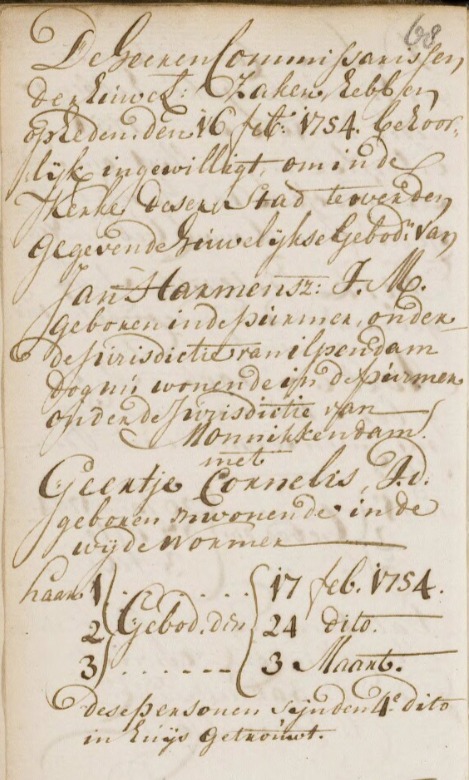 68
De Heeren Commissarissen
der Huwel: Zaken, hebben
op heden den 16 feb: 1754. behoor,
lijk ingewilligt, om in de
Kerke deser Stad te werden
gegeven de Huwelijkse Gebod:n van
Jan Harmensz: J. M.
geboren in de purmer, onder
de jurisdictie van ilpendam
dog nu wonende in de purmer
onder de Jurisdictie van
Monnikkendam.
met
Geertje Cornelis, J.d.
geboren en wonende in de
wijde wormer
haar 1 . . . . . . . 17 feb. 1754.
2 Gebod. den 24 dito.
3 . . . . - - - 3 Maart.
dese personen sijn den 4e dito
in huijs getrouwt.